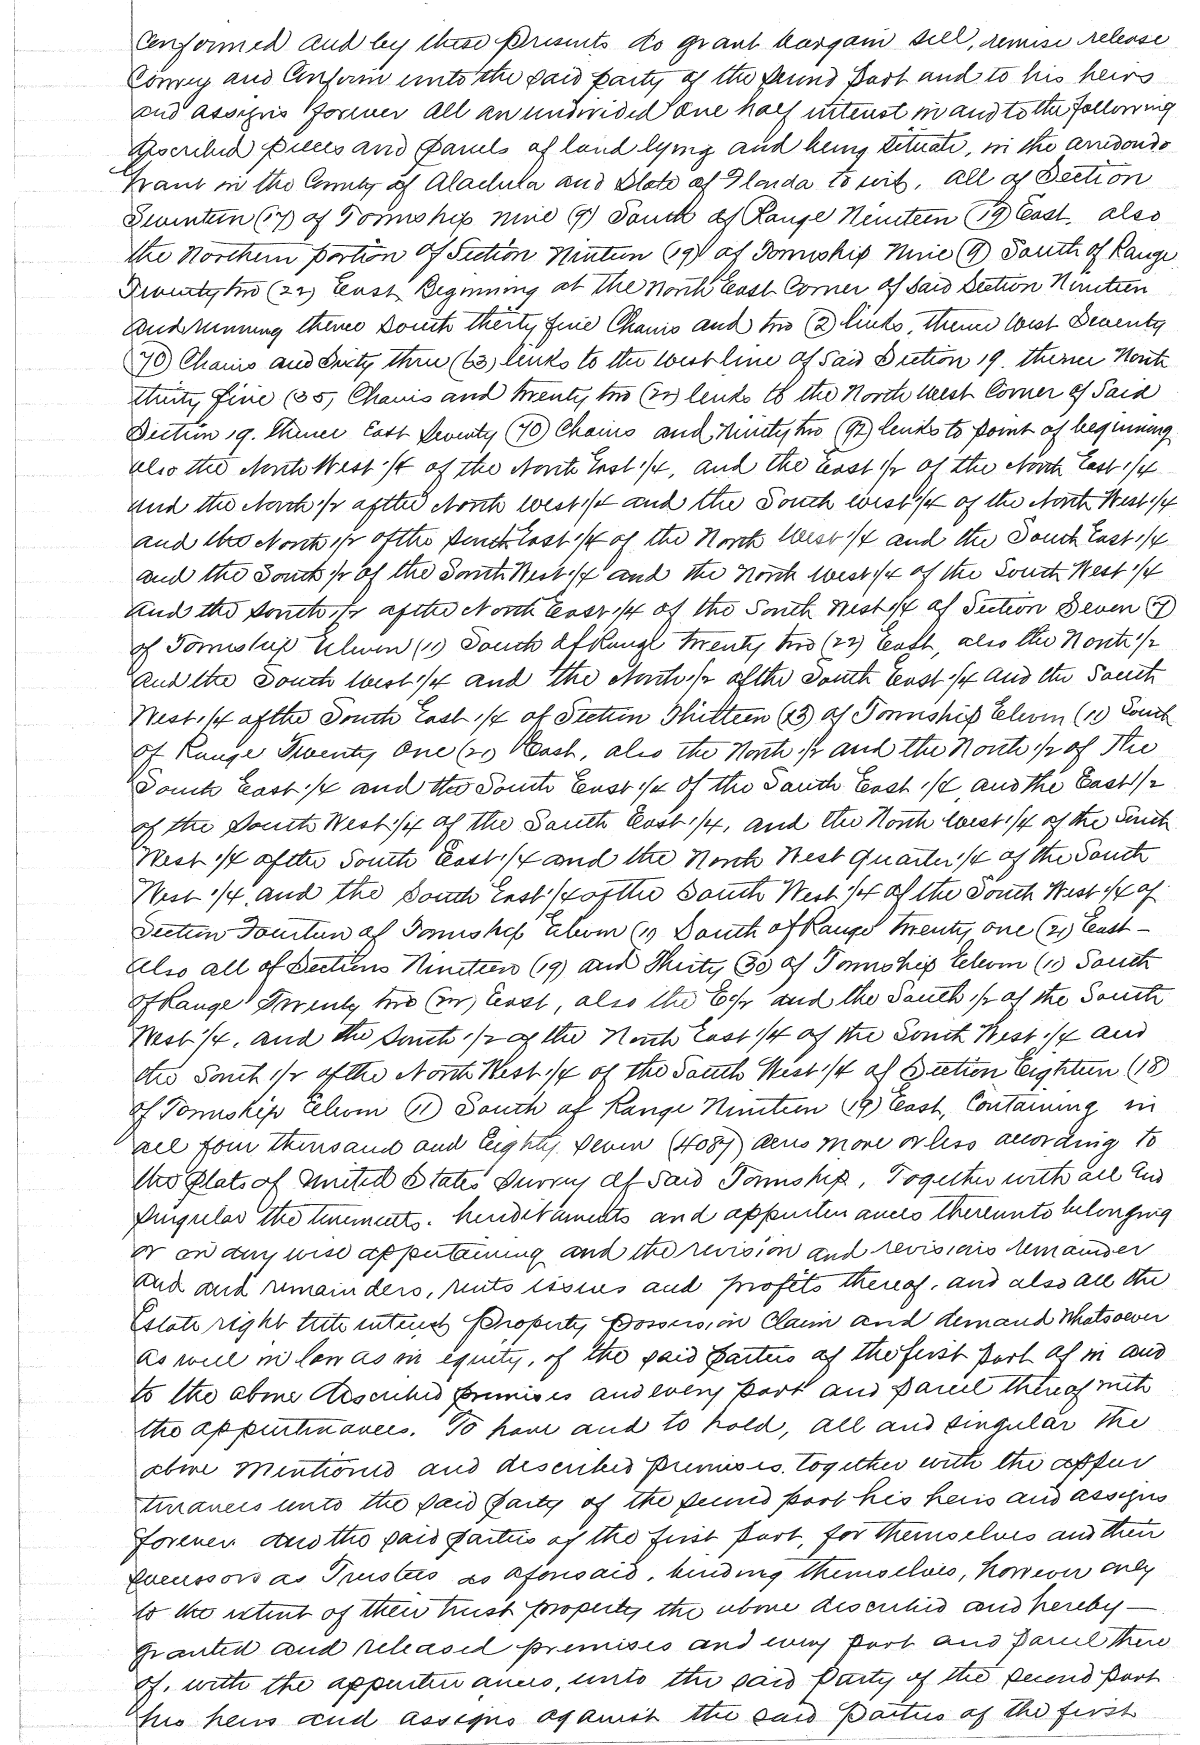 Confirmed and by these presents do grant bargain sell, remise release
Convey and Confirm unto the said party of the second part and to his heirs
and assigns forever all an undivided one half interest in and to the following
described pieces and parcels of land lying and being situate, in the arredondo
Grant in the County of Alachua and State of Florida to wit, all of Section
Seventeen (17) of Township nine (9) South of Range Nineteen (19) East. also
the Northern portion of Section Ninteen (19) of Township Nine (9) South of Range
Twenty two (22) East, Beginning at the North East Corner of Said Section Nineteen
and running thence South thirty five Chains and two (2) links, thence West Seventy
(70) Chains and Sixty three (63) links to the west line of Said Section 19. thence North
thirty five (35) Chains and twenty two (22) links to the North West Corner of Said
Section 19. thence East Seventy (70) Chains and Ninety two (92) links to point of beginning
also the North West 1/4 of the North East 1/4, and the East 1/2 of the North East 1/4
and the North 1/2 of the North west 1/4 and the South west 1/4 of the North West 1/4
and the North 1/2 of the South East 1/4 of the North West 1/4 and the South East 1/4
and the South 1/2 of the South West 1/4 and the North west 1/4 of the South West 1/4
and the South 1/2 of the North East 1/4 of the South West 1/4 of Section Seven (7)
of Township Eleven (11) South of Range twenty two (22) East, also the North 1/2
and the South west 1/4 and the North 1/2 of the South East 1/4 and the South
West 1/4 of the South East 1/4 of Section Thirteen (13) of Township Eleven (11) South
of Range Twenty one (21) East, also the North 1/2 and the North 1/2 of the
South East 1/4 and the South East 1/4 of the South East 1/4, and the East 1/2
of the South West 1/4 of the South East 1/4, and the North west 1/4 of the South
West 1/4 of the South East 1/4 and the North West quarter 1/4 of the South
West 1/4, and the South East 1/4 of the South West 1/4 of the South West 1/4 of
Section Fourteen of Township Eleven (11) South of Range twenty one (21) East -
Also all of Sections Nineteen (19) and Thirty (30) of Township Eleven (11) South
of Range Twenty two (22) East, also the E 1/2 and the South 1/2 of the South
West 1/4, and the South 1/2 of the North East 1/4 of the South West 1/4 and
the South 1/2 of the North West 1/4 of the South West 1/4 of Section Eighteen (18)
of Township Eleven (11) South of Range Nineteen (19) East, Containing in
all four thousand and Eighty seven (4087) acres more or less according to
the plats of United States survey of Said Township, Together with all and
singular the tenements. hereditaments and appurtenances thereunto belonging
or in any wise appertaining and the revision and revisions remainder
and and remainders, rents issues and profits thereof, and also all the
Estate right title interest property possession Claim and demand whatsoever
as well in law as in equity, of the said parties of the first part of in and
to the above described premises and every part and parcel thereof with
the appurtenances. To have and to hold, all and singular the
above mentioned and described premises. together with the appur
tenances unto the said party of the second part his heirs and assigns
forever. and the said parties of the first part, for themselves and their
successors as Trustees as aforesaid, binding themselves, however only
to the extent of their trust property the above described and hereby —
granted and released premises and every part and parcel there
of, with the appurtenances, unto the said party of the second part
his heirs and assigns against the said parties of the first